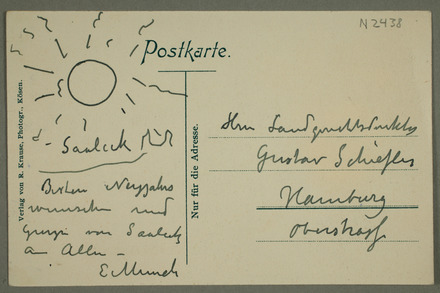 N 2438
Postkarte.
Verlag von R. Krause, Photogr., Kösen.
Nur für die Adresse.
Saaleck
Besten Neujahrs
wunschen und
von Saaleck
an Alle –
E. Munch
Herrn Landgerichtsdirektor
Gustav Schiefler
Hamburg
Oberstrasse